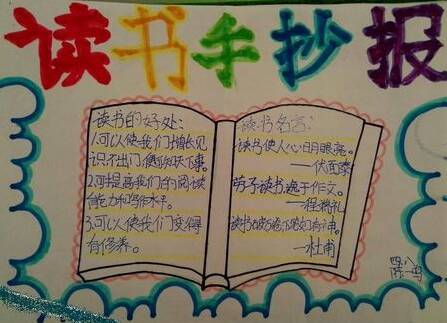 读书手抄报
读书的好处:
1.可以使我们增长见
识不出门,便知天下事。
2.可提高我们的阅读
能力和写作水平。
3.可以使我们变得
有修养。
读书名言:
读书使人心明眼亮。
——伏
读书
——程端礼
读书破万卷下笔如有神。
——杜甫
四、八